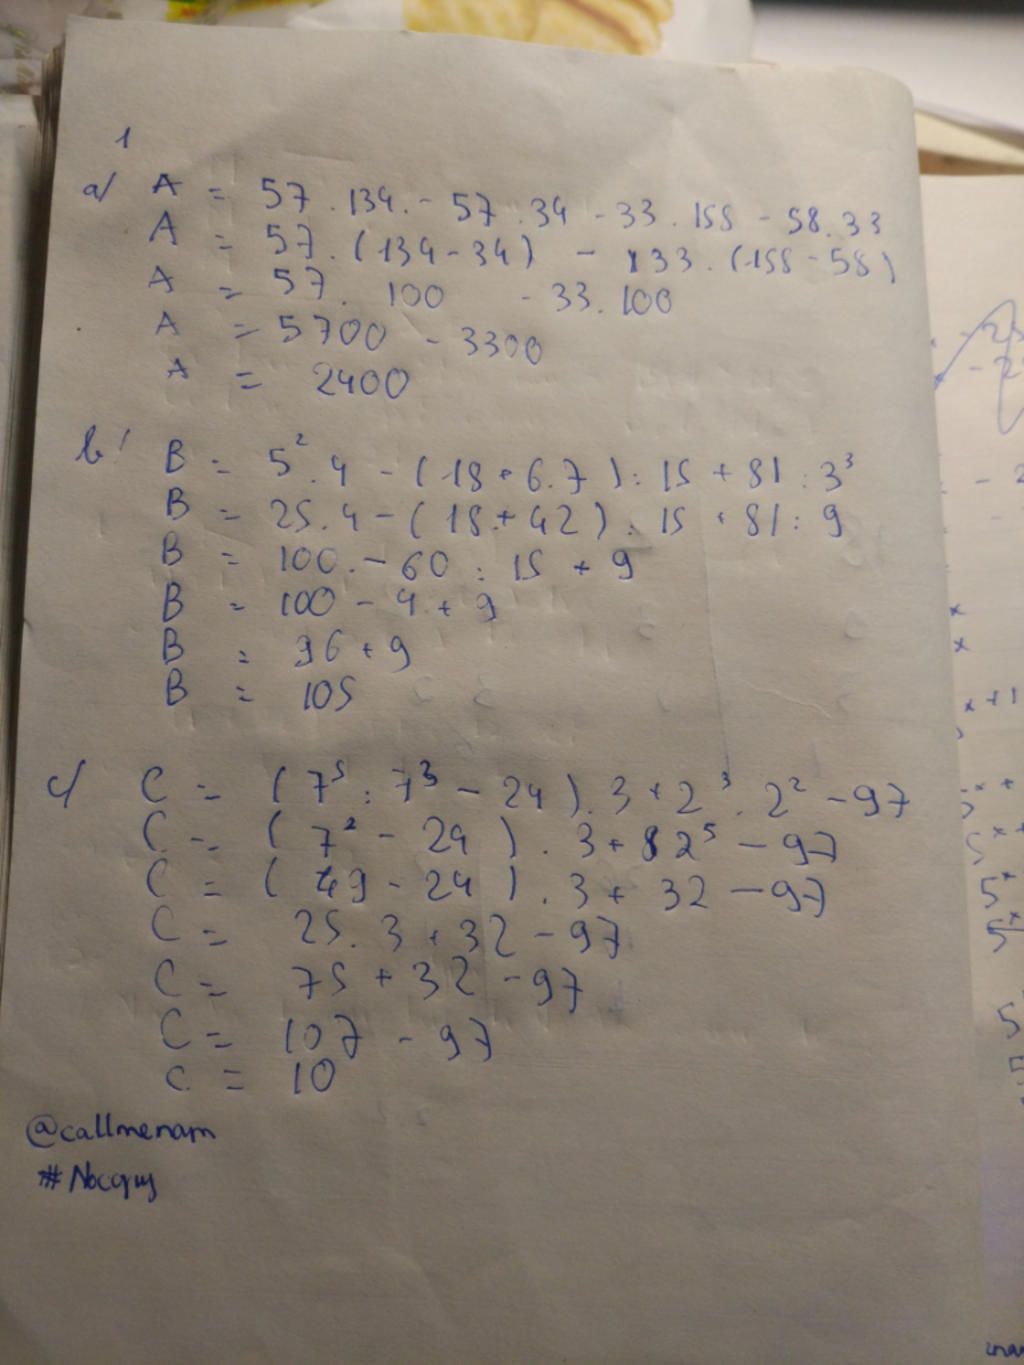 1
a/ A = 57 . 134 - 57 . 34 - 33 . 158 - 58 . 33
A = 57 . (134 - 34) - 33 . (158 - 58)
A = 57 . 100 - 33 . 100
A = 5700 - 3300
A = 2400
b/ B = 5² . 4 - (18 + 6 . 7) : 15 + 81 : 3³
B = 25 . 4 - (18 + 42) : 15 + 81 : 9
B = 100 - 60 : 15 + 9
B = 100 - 4 + 9
B = 96 + 9
B = 105
c/ C = (7⁵ : 7³ - 24) . 3 + 2³ . 2² - 97
C = (7² - 24) . 3 + 2⁵ - 97
C = (49 - 24) . 3 + 32 - 97
C = 25 . 3 + 32 - 97
C = 75 + 32 - 97
C = 107 - 97
C = 10
@callmenam